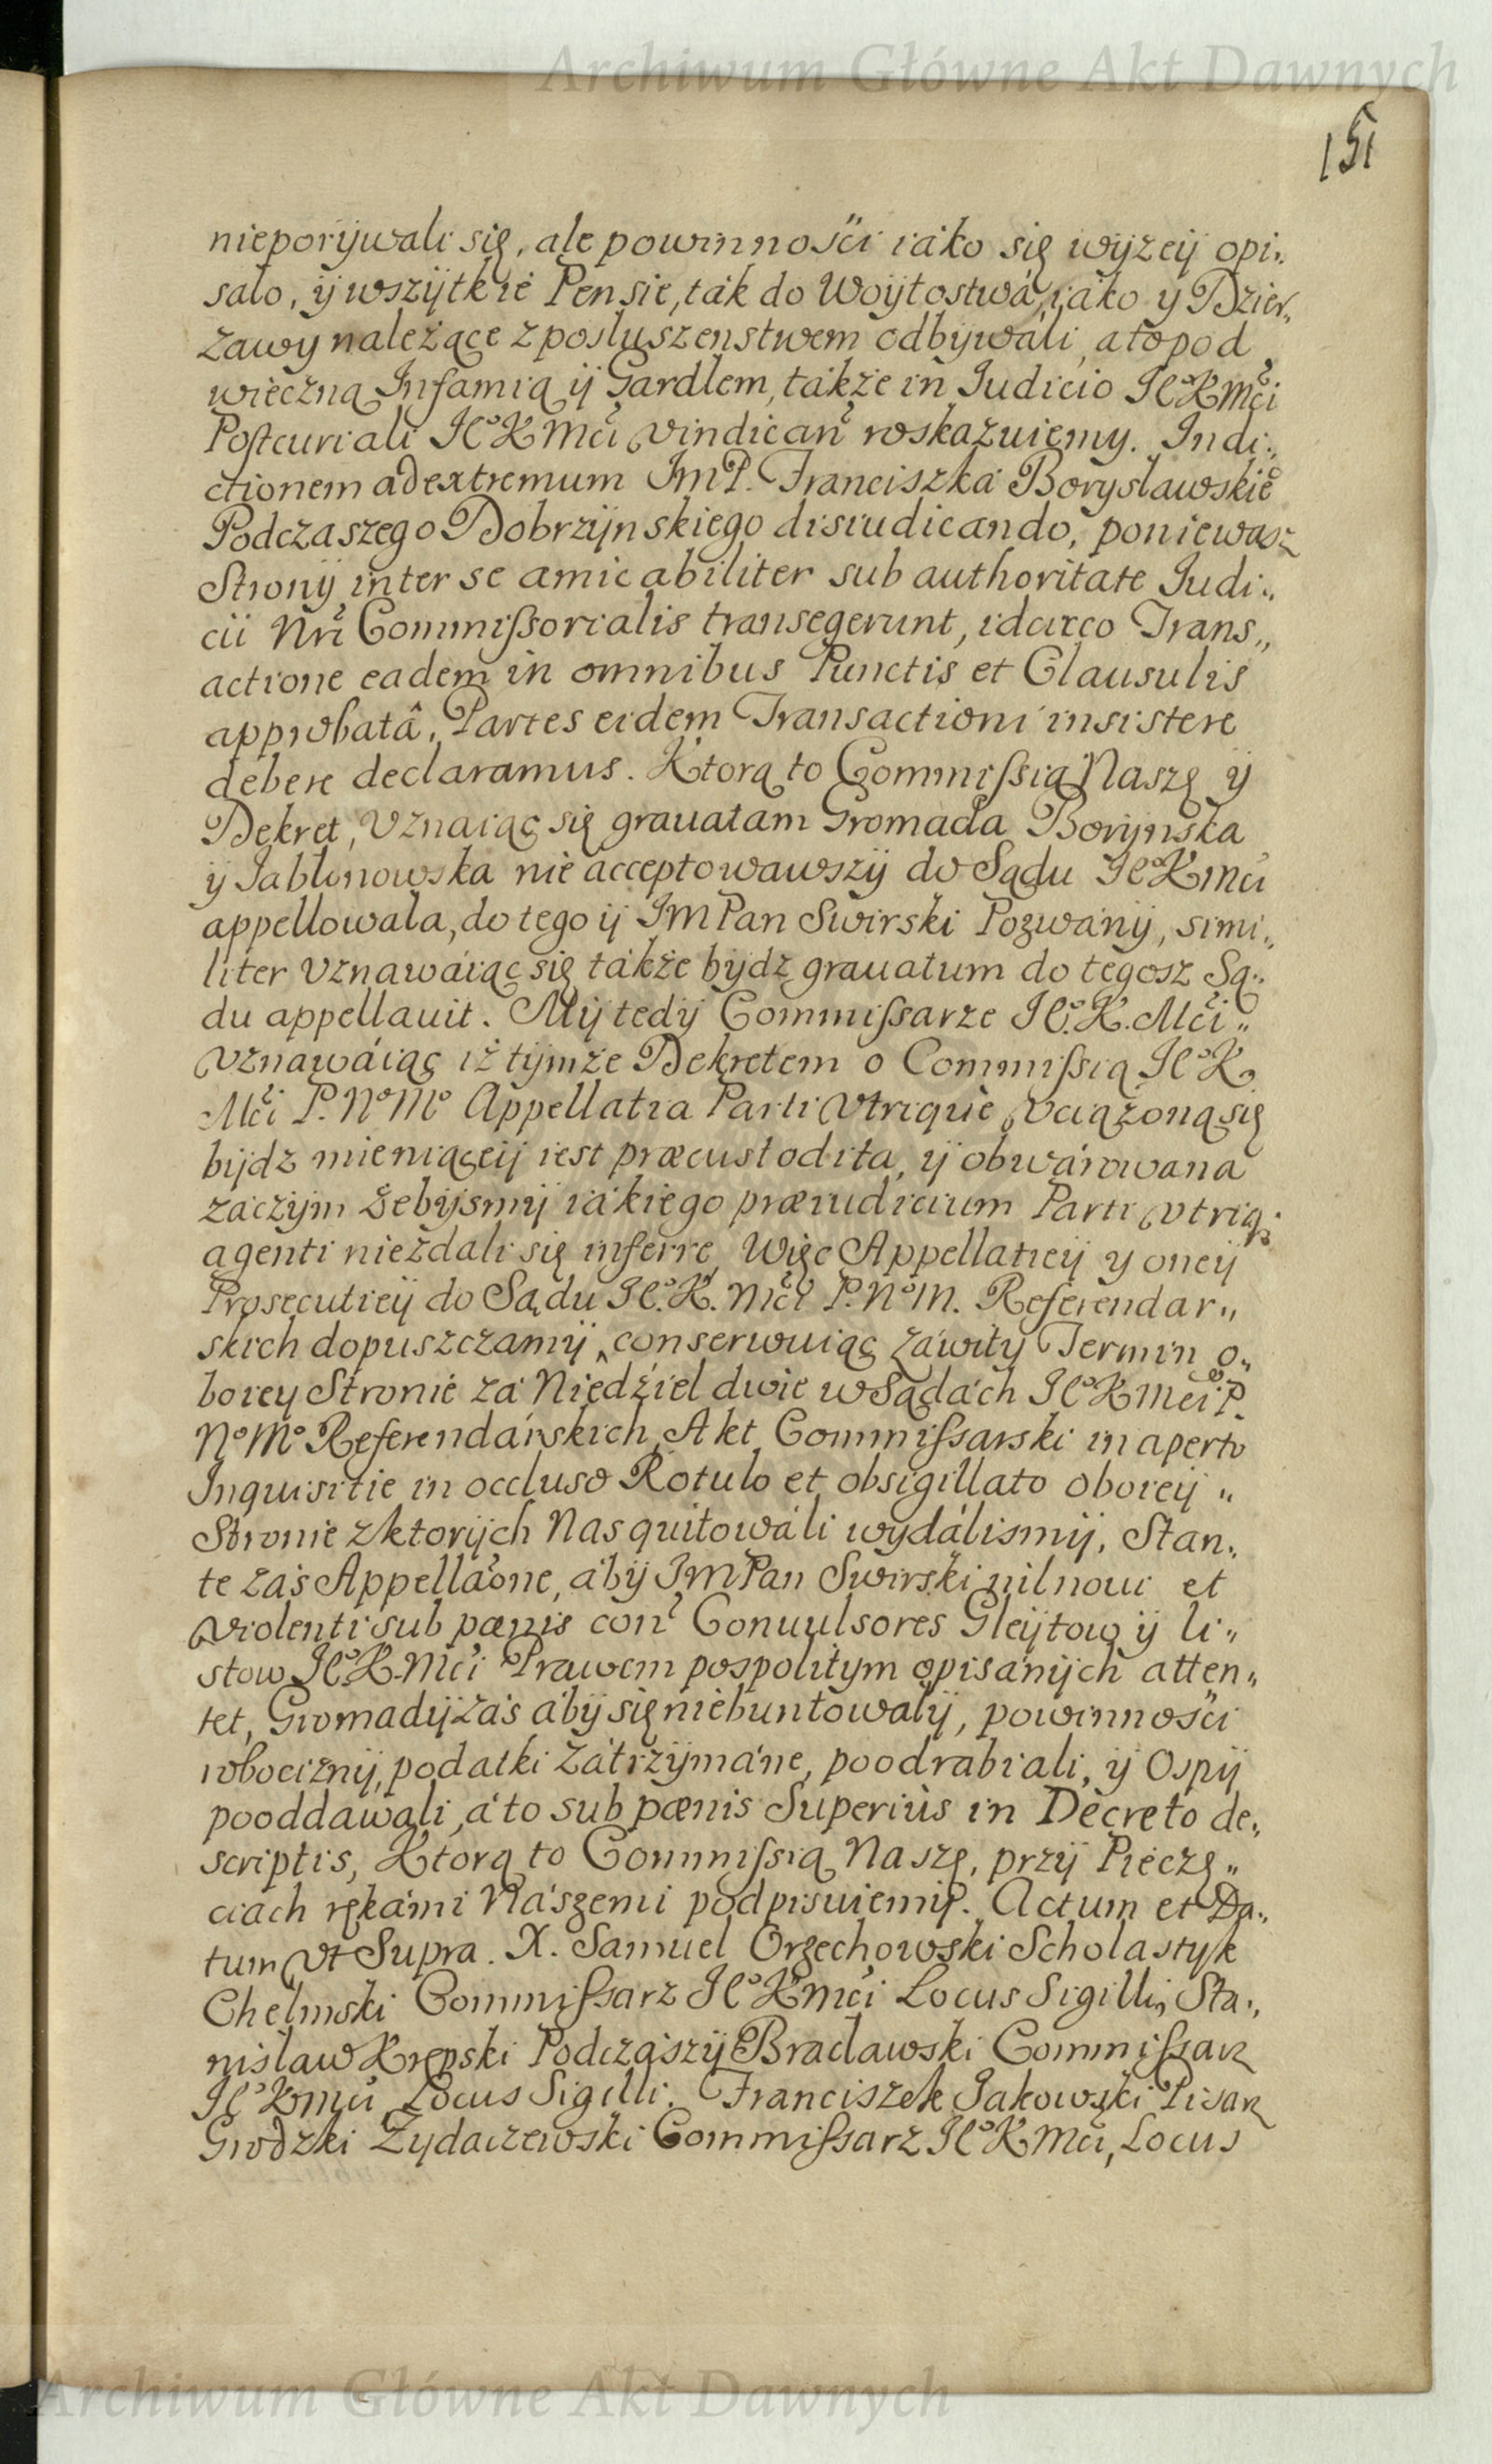 Archiwum Główne Akt Dawnych
151
nieporÿwali się, ale powinnośći iáko się wÿzeÿ opi„
salo, ÿ wszÿtkie Pensie, ták do Woÿtostwá, iáko y Dzier„
żawy należące z posluszenstwem odbÿwáli, a to pod
wieczną Infamią ÿ Gardlem, także in Iudicio Je͛o K Mći
Postcuriali Je͛o K Mći vindican͛ roskazuiemy. Indi„
ctionem ad extremum JmP. Franciszka Boryslawskie͛
Podczaszego Dobrzÿnskiego disiudicando, poniewasz
Stronÿ inter se amicabiliter sub authoritate Iudi„
cii Nrĩ Commissorialis transegerunt, idcirco Trans„
actione eadem in omnibus Punctis et Clausulis
approbatâ, Partes eidem Transactioni insistere
debere declaramus. Ktorą to Commissią Naszę ÿ
Dekret, vznaiąc się grauatam Gromada Borÿnska
ÿ Jablonowska nie acceptowawszÿ do Sądu Je͛o K Mći
appellowala, do tego ÿ JM Pan Swirski Pozwánÿ, simi„
liter vznawáiąc się także bÿdz grauatum do tegosz Są„
du appellauit. Mÿ tedÿ Commissarze Je͛o K. Mći„
vznawáiąc iż tÿmże Dekretem o Commissią Je͛o K
Mći P. No Mo Appellatia Parti vtrique vciążoną się
bÿdz mieniąceÿ iest præcustodita, ÿ obwárowana
záczÿm żebÿsmÿ iákiego præiudicium Parti vtriq;
agenti nieżdali się inferre, Więc Appellatieÿ y oneÿ
Prosecutieÿ do Sądu Je͛o K. Mći P. No M. Referendar„
skich dopuszczamÿ, conserwuiąc záwitÿ Termin o„
borey Stronie zá Niedźiel dwie w Sądách Je͛o K Mći P.
No Mo Referendárskich, Akt Commissarski in aperto
Inquisitie in occluso Rotulo et obsigillato oboieÿ „
Stronie z ktorÿch Nas quitowáli wydálismÿ, Stan„
te záś Appella͠one, ábÿ JM Pan Swirski nil noui et
violenti sub pœnis con͛ Conuulsores Gleÿtow ÿ li„
stow Je͛o K. Mći Prawem pospolitym opisánÿch atten„
tet, Gromadÿ záś ábÿ się niebuntowalÿ, powinnośći
robociznÿ, podatki zátrzÿmáne, poodrabiali, ÿ Ospÿ
pooddawali, á to sub pœnis Superiùs in Decreto de„
scriptis, Ktorą to Commissią Naszę, przÿ Pieczę„
ciach rękámi Nászemi podpisuiemÿ. Actum et Da„
tum vt Supra. X. Samuel Orzechowski Scholastyk
Chelmski Commissarz Je͛o K Mći Locus Sigilli, Sta„
nislaw Krepski Podczaszÿ Braclawski Commissarz
Je͛o K Mći Locus Sigilli. Franciszek Jakowski Pisarz
Grodzki Zydaczewski Commissarz Je͛o K Mći, Locus
Archiwum Główne Akt Dawnych